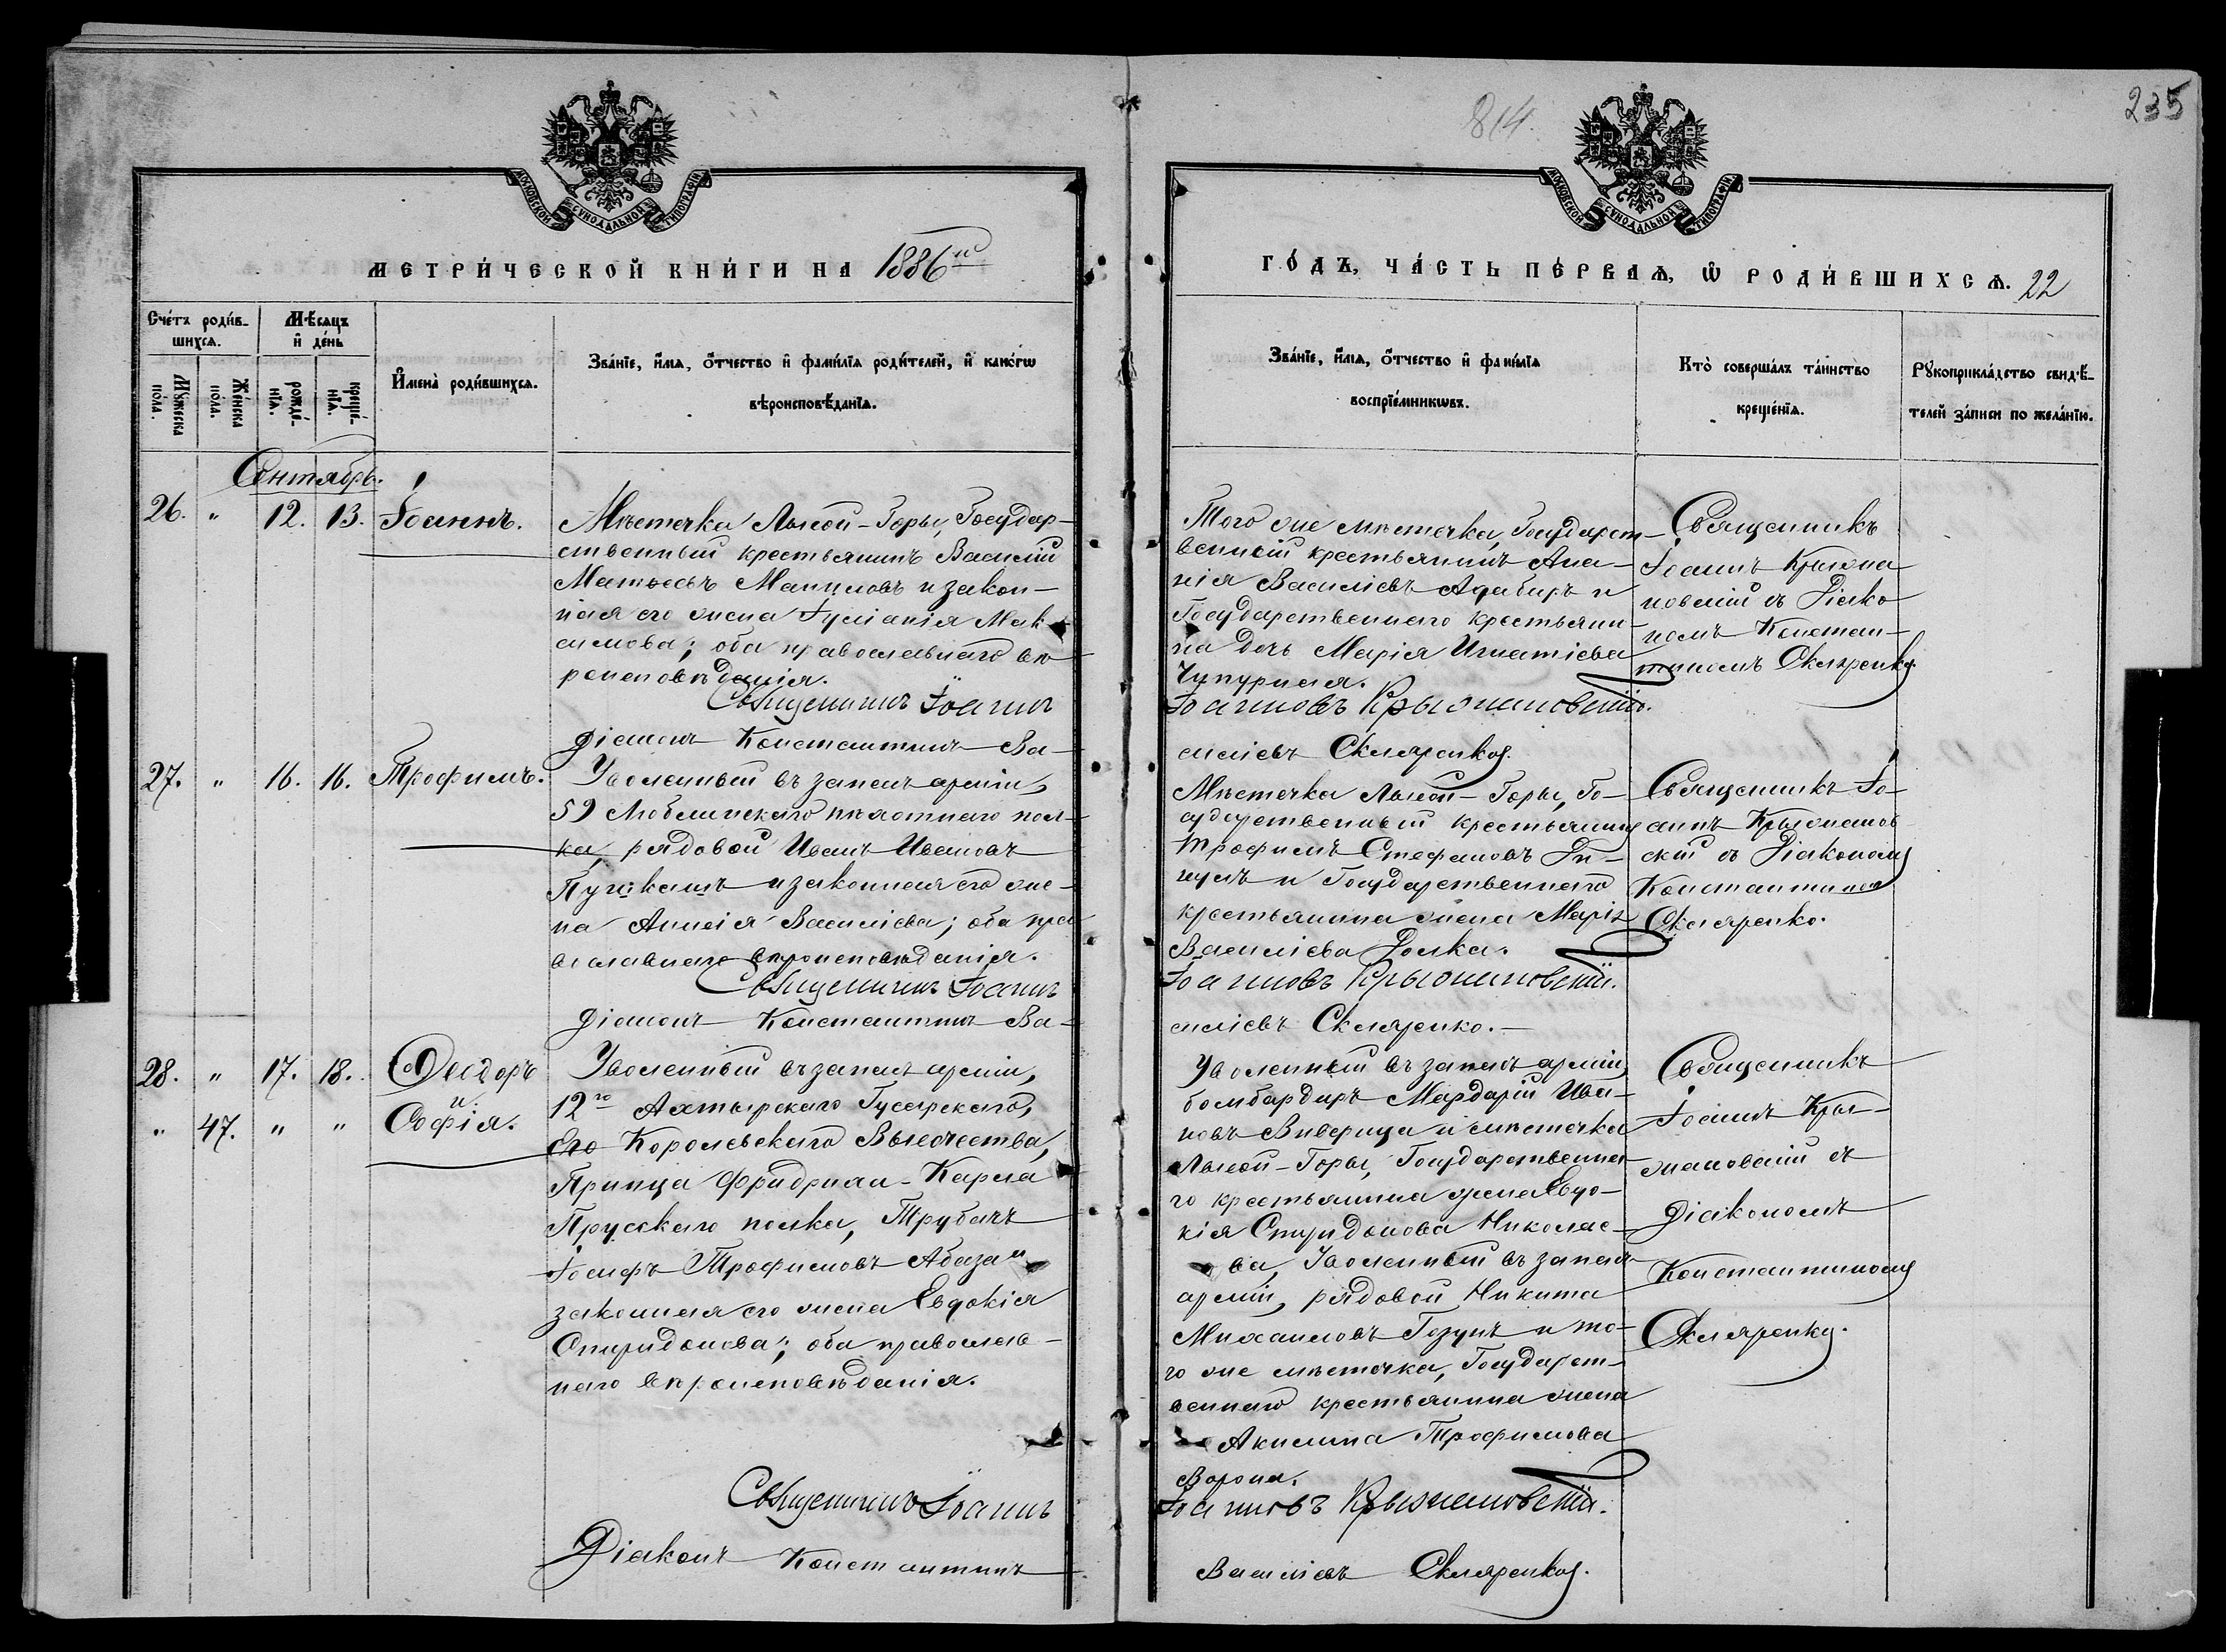 235
814.
МОСКОВСКОЙ СУНОДАЛЬНОЙ ТИПОГРАФІИ
МОСКОВСКОЙ СУНОДАЛЬНОЙ ТИПОГРАФІИ
МЕТРИ́ЧЕСКОЙ КНИ́ГИ НА 1886й
ГО́ДЪ, ЧА́СТЬ ПЕ́РВАѦ, Ѡ҆ РОДИ́ВШИХСѦ. 22
Сче́тъ роди́в-
шихся.
Мѣ́сяцъ
и҆ де́нь
Мꙋ́жеска
по́ла.
Же́нска
по́ла.
рожде́-
нїѧ.
креще́-
нїѧ.
И҆мена̀ роди́вшихся.
Зва́нїе, и҆́мѧ, ѻ҆́тчество и҆ фами́лїѧ роди́телей, и҆ како́гѡ
вѣроисповѣ́данїѧ.
Зва́нїе, и҆́мѧ, ѻ҆́тчество и҆ фами́лїѧ
воспрїе́мникѡвъ.
Кто̀ соверша́лъ та́инство
креще́нїѧ.
Рꙋкоприкла́дство свидѣ́-
телей за́писи по жела́нїю.
Сентябрь.
26. " 12. 13. Іоаннъ.
Мѣстечка Лысой-Горы, Государ-
ственный крестьянинъ Василій
Матѳеевъ Манциловъ и закон-
ная его жена Іуліанія Мак-
симова; оба православнаго вѣ-
роисповѣданія.
Священникъ Іоаннъ
Діаконъ Константинъ Ва-
Того же мѣстечка, Государст-
венный крестьянинъ Ана-
нія Василіевъ Адабиръ и
Государственнаго крестьяни-
на дочь Марія Игнатіева
Чупурная.
Іоанновъ Крыжановскій.
силіевъ Скляренко.
Священникъ
Іоаннъ Крыжа
новскій съ Діако
номъ Констан-
тиномъ Скляренко.
27. " 16. 16. Трофимъ.
Уволенный въ запасъ арміи,
59 Люблинскаго пѣхотнаго пол-
ка, рядовой Иванъ Ивановъ
и законная его же-
на Аннсія Василіева; оба пра
вославнаго вѣроисповѣданія.
Священникъ Іоаннъ
Діаконъ Константинъ Ва-
Мѣстечка Лысой-Горы, Го-
сударственный крестьянинъ
Трофимъ Стефановъ
и Государственнаго
крестьянина жена Марія
Василіева Долка.
Іоанновъ Крыжановскій.
силіевъ Скляренко.-
Священникъ Іо-
аннъ Крыжанов
скій съ Діакономъ
Константиномъ
Скляренко.
28. " 17. 18. Ѳеодоръ
и
" 47. " " Софія.
Уволенный въ запасъ арміи,
12го Ахтырскаго Гусарскаго,
Его Королевскаго Высочества,
Принца Фридриха-Карла
Прусскаго полка, Трубачъ
Іосифъ Трофимовъ Абаза и
законная его жена Евдокія
Спиридонова; оба православ-
наго вѣроисповѣданія.
Священникъ Іоаннъ
Діаконъ Константинъ
Уволенный въ запасъ арміи,
бомбардиръ Мардарій Ива-
новъ Виверица и мѣстечка
Лысой-Горы, Государственна-
го крестьянина жена Евдо-
кія Спиридонова Николае-
ва, Уволенный въ запасъ
арміи, рядовой Никита
Михаиловъ Гозунъ и то-
го же мѣстечка, Государст-
веннаго крестьянина жена
Акилина Трофимова
Ворона.
Іоанновъ Крыжановскій.
Василіевъ Скляренко.
Священникъ
Іоаннъ Кры-
жановскій съ
Діакономъ
Константиномъ
Скляренко.